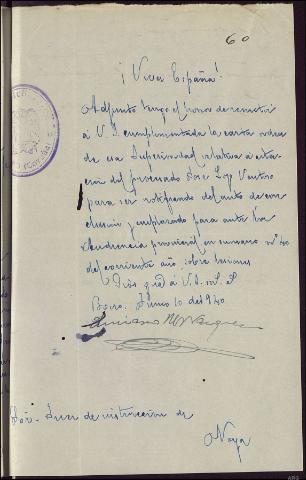 60
¡Viva España!
Adjunto tengo el honor de remitir
á V.S. cumplimentada la carta orden
de esa Superioridad relativa á citación
del procesado José
para ser notificado del auto de con
clusión y emplazado para ante la
Audiencia provincial en sumario nº 40
del corriente año sobre lesiones
Dios gué á V.S. m. a.
Boiro. Junio 10 de 1940
Sor. Juez de instruccion de
Noya